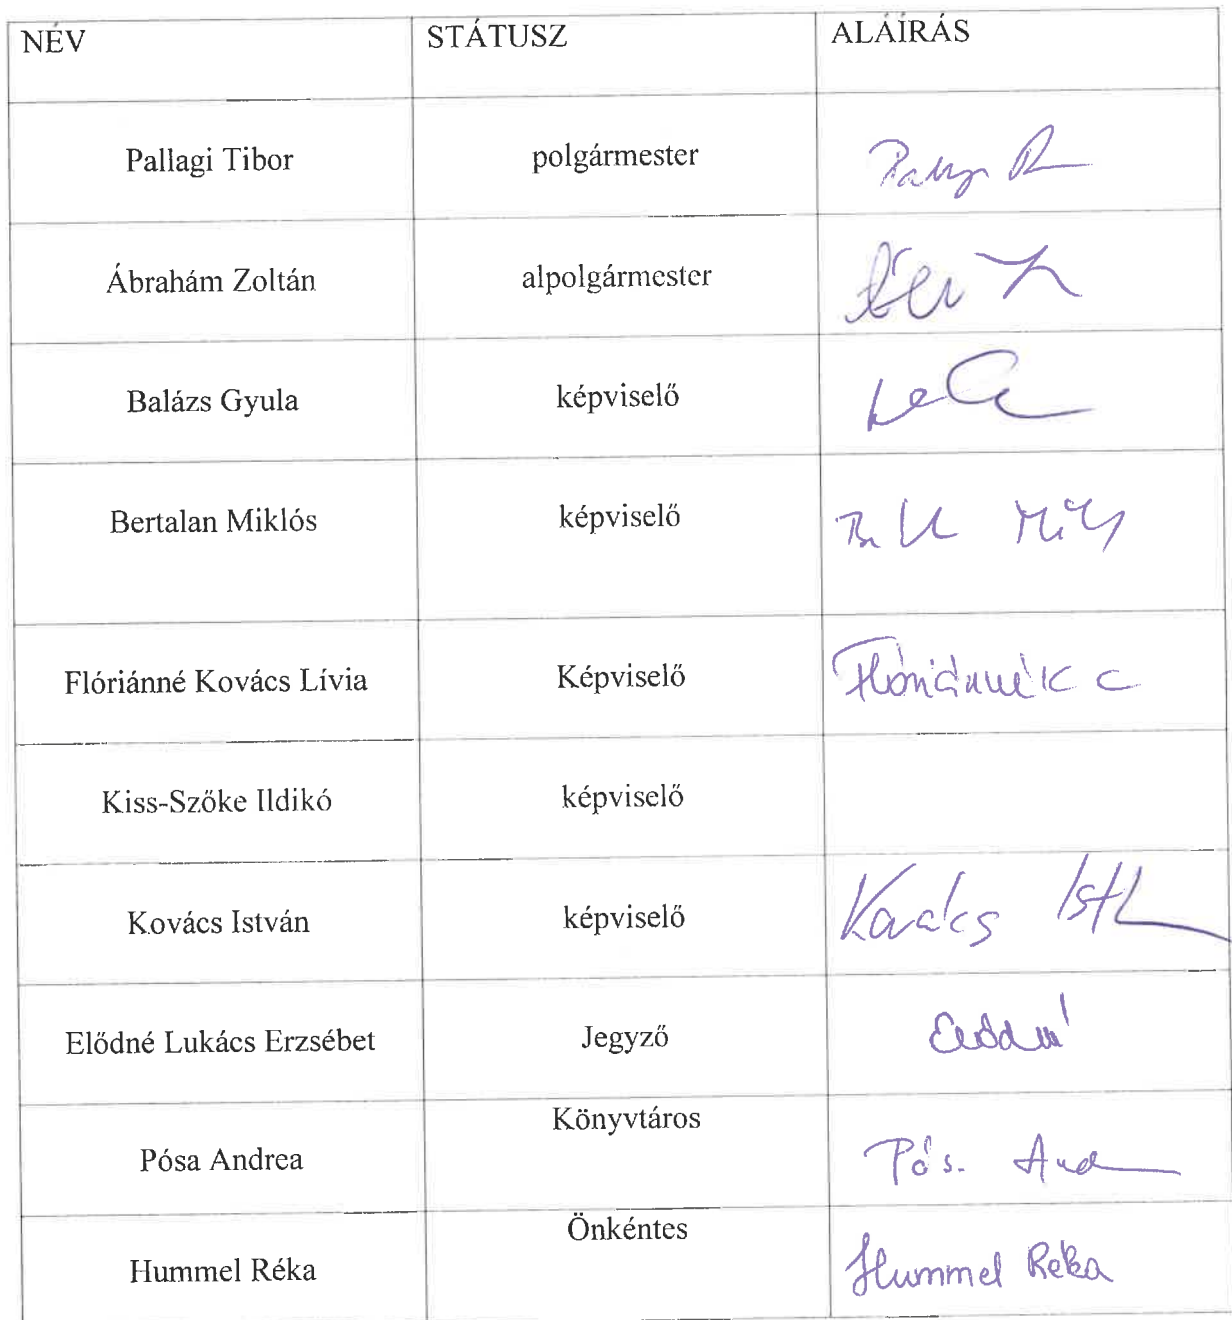 NÉV STÁTUSZ ALÁÍRÁS
Pallagi Tibor polgármester
Ábrahám Zoltán alpolgármester
Balázs Gyula képviselő
Bertalan Miklós képviselő
Flóriánné Kovács Lívia Képviselő Flóriánné K
Kiss-Szőke Ildikó képviselő
Kovács István képviselő Kovács
Elődné Lukács Erzsébet Jegyző Elődné
Pósa Andrea Könyvtáros
Hummel Réka Önkéntes Hummel Réka